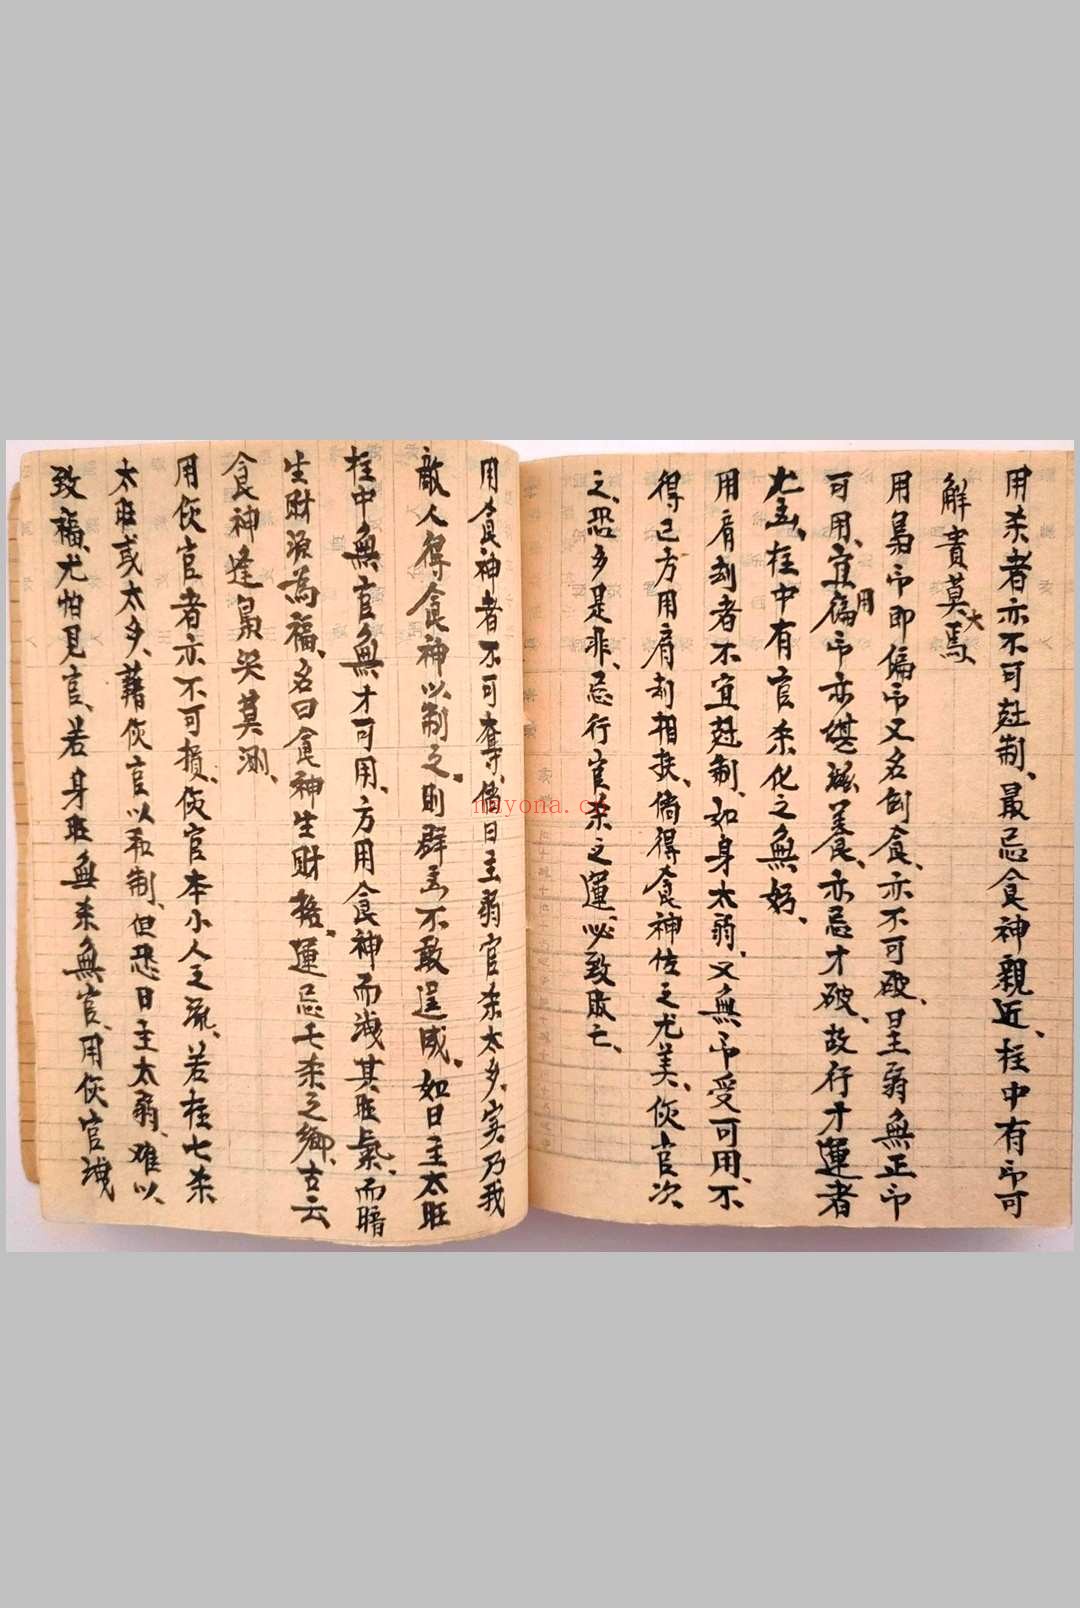 用杀者亦不可尅制、最忌食神親近、柱中有印可
解貴莫大焉、
用梟印即偏印又名倒食、亦不可破、日主弱無正印
可用、宜用偏印亦堪滋養、亦忌才破、故行才運者
尤凶、柱中有官杀化之無妨、
用肩刦者不宜尅制、如身太弱、又無印受可用、不
得已方用肩刦相扶、倘得食神佐之尤美、伤官次
之、恐多是非、忌行官杀之運、必致敗亡、
用食神者不可奪、倘日主弱官杀太多、实乃我
敵人得食神以制之、則群凶不敢逞威、如日主太旺
柱中無官無才可用、方用食神而洩其旺氣、而暗
生財源為福、名曰食神生財格、運忌七杀之鄉、古云
食神逢梟哭莫測、
用伤官者亦不可損、伤官本小人之流、若柱七杀
太旺或太多、藉伤官以和制、但恐日主太弱、难以
致福、尤怕見官、若身旺無杀無官、用伤官洩